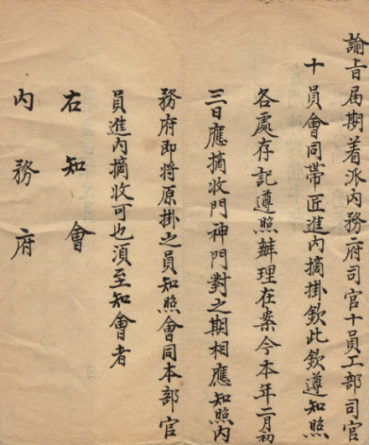 諭旨届期着派内務府司官十員工部司官
十員會同帶匠進内摘掛欽此欽遵知照
各處存記遵照辦理在案今本年二月初
三日應摘收門神門對之期相應知照内
務府即將原掛之員知照會同本部官
員進内摘收可也須至知會者
右知會
内務府